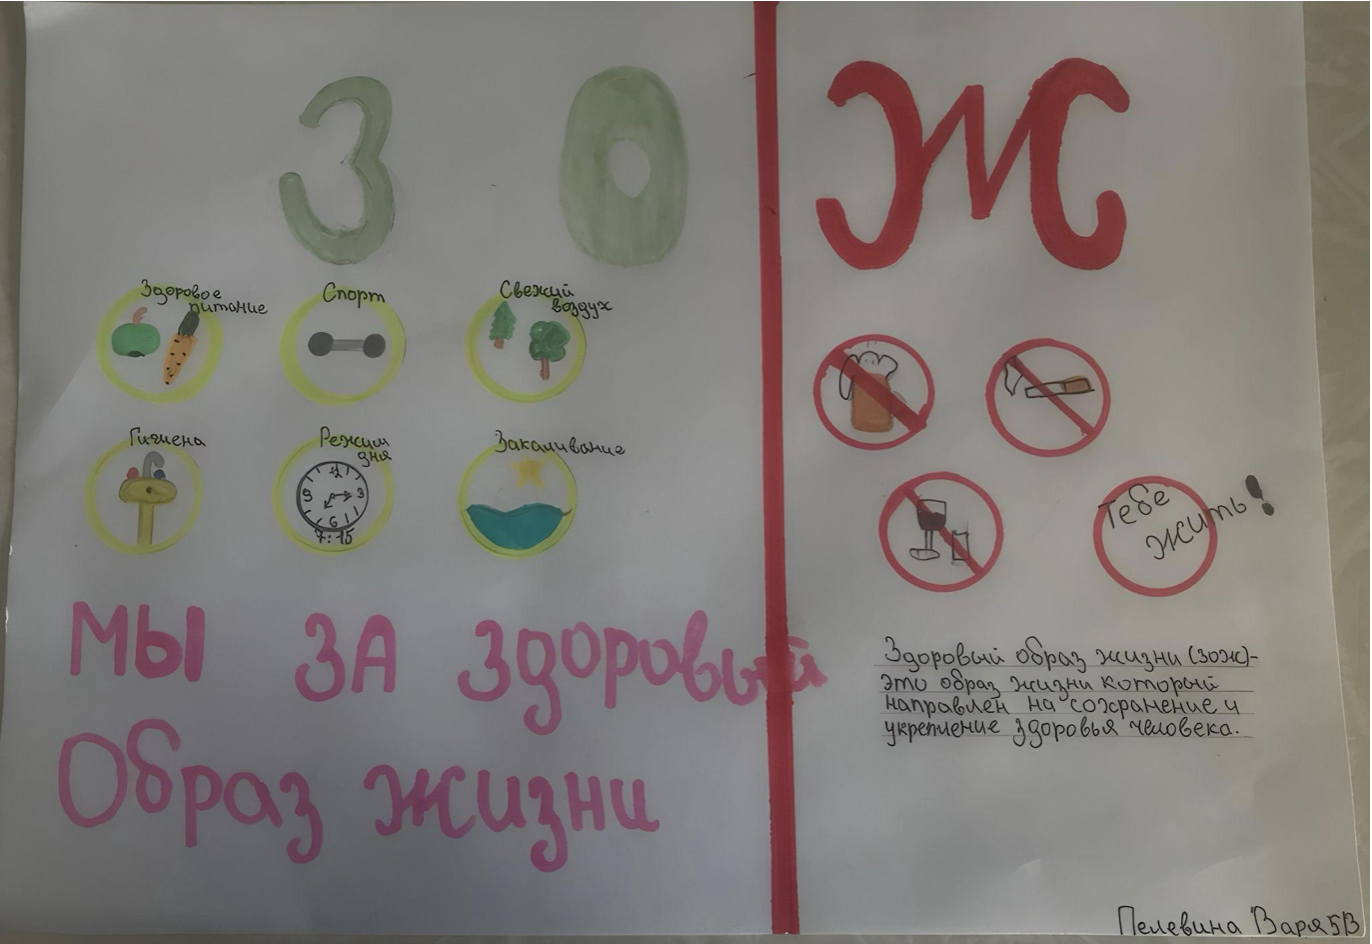 ЗОЖ
Здоровое
питание
Спорт
Свежий
воздух
Гигиена
Режим
дня
Закаливание
12
9 3
6
7:15
Тебе
жить!
Мы ЗА здоровый
Образ жизни
Здоровый образ жизни (зож)-
это образ жизни который
направлен на сохранение и
укрепление здоровья человека.
Пелевина Варя 5В